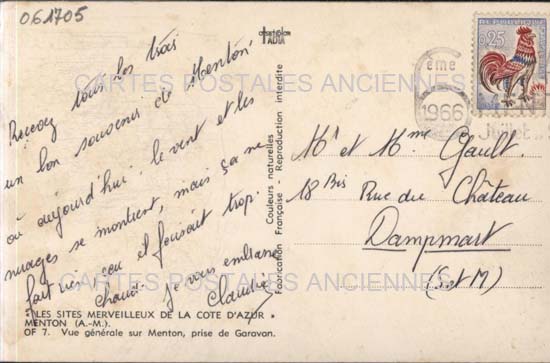 061705
combier
CIM
Recevez tous les trois
un bon souvenir de Menton
où aujourd'hui le vent et les
nuages se montrent, mais ça ne
fait rien car il faisait trop
chaud. Je vous embrasse
Claudie
"LES SITES MERVEILLEUX DE LA COTE D'AZUR"
MENTON (A.-M.)
OF 7. Vue générale sur Menton, prise de Garavan.
Fabrication Française
Couleurs naturelles
Reproduction interdite
REPUBLIQUE
0,25
eme
1966
Juillet
Mr et Mme Gault.
18 Bis Rue du Château
Dampmart
(S et M)
CARTES POSTALES ANCIENNES
CARTES POSTALES ANCIENNES